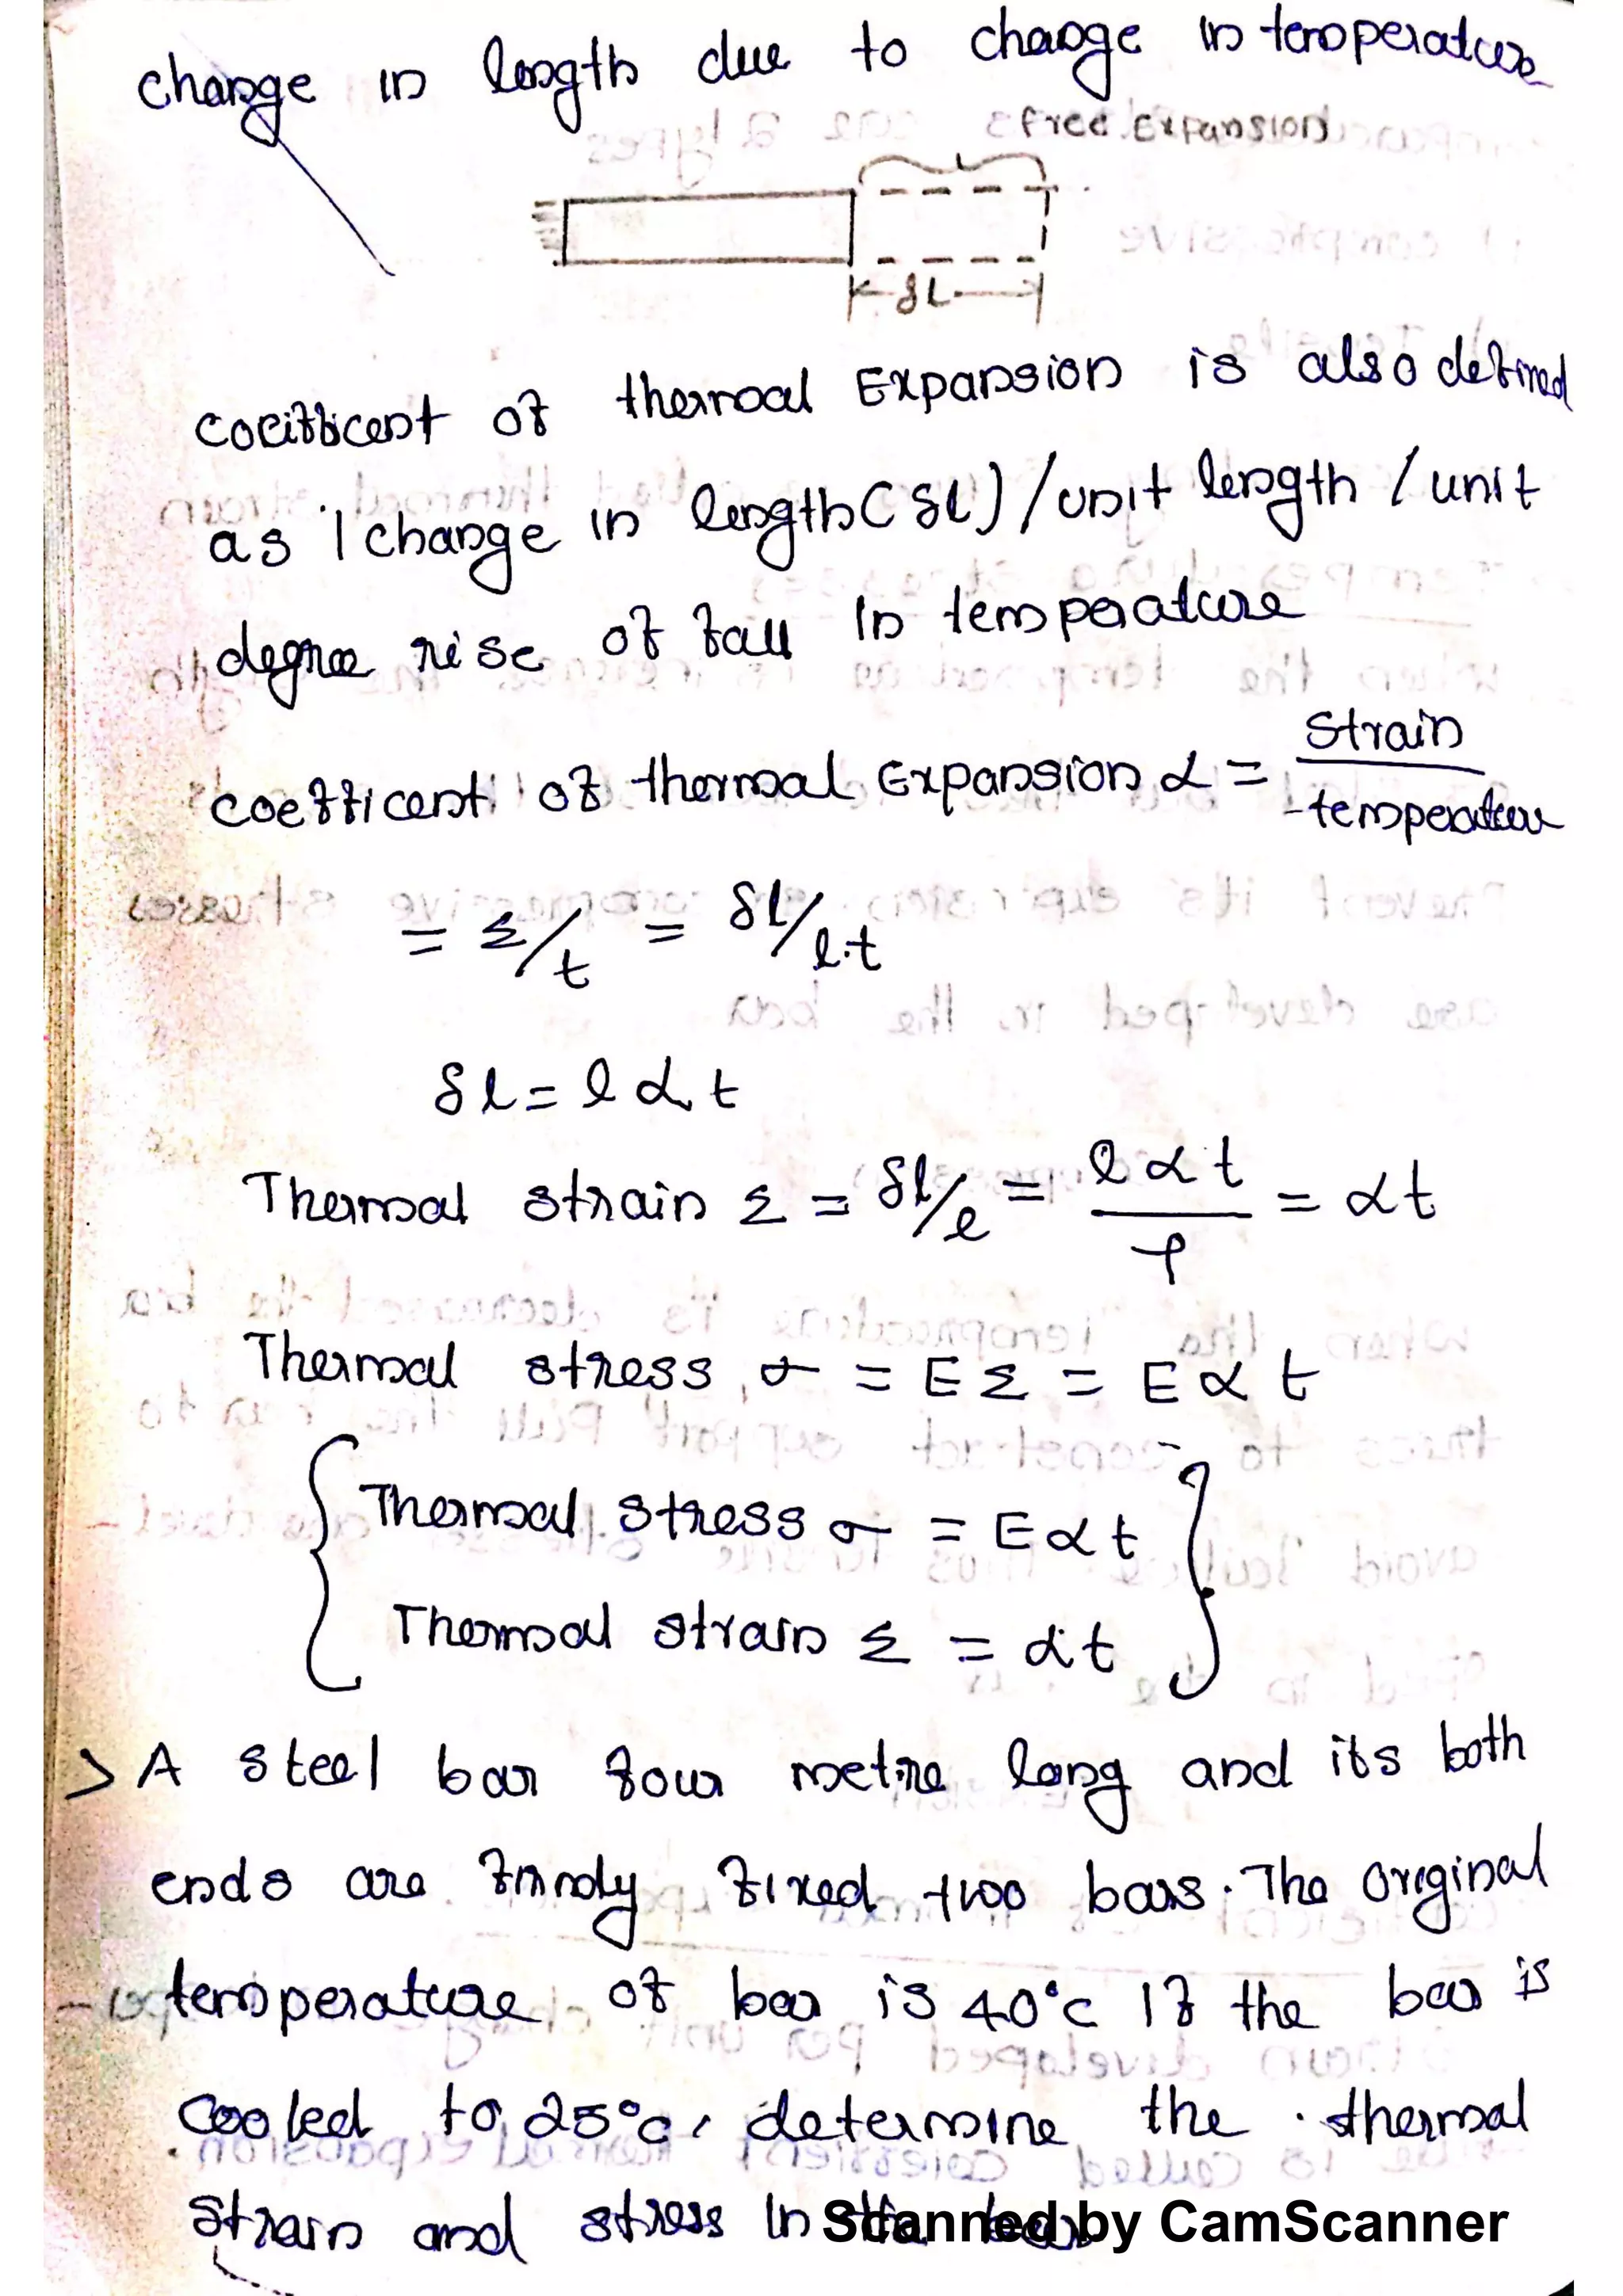 change in length due to change in temperature
free Expansion
δL
coeifficent of thermal Expansion is also defined
as change in length(δl)/unit length/unit
degree rise of fall In temperature
coefficent of thermal Expansion α = Strain/temperature
= ε/t = δl/l.t
δl = l α t
Thermal strain ε = δl/l = l α t/l = αt
Thermal stress, σ = E ε = E α t
Thermal stress σ = E α t
Thermal strain ε = αt
> A steel bar four metre long and its both
ends are firmly fixed two bars. The original
temperature of bar is 40°c If the bar is
cooled to 25°c, determine the thermal
strain and stress In the bar
Scanned by CamScanner